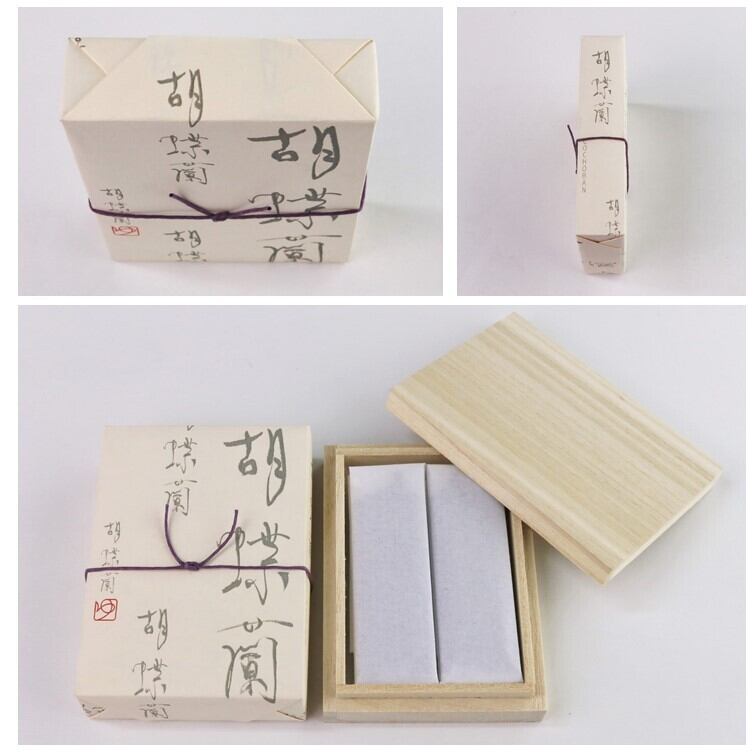 胡蝶蘭
胡蝶蘭
胡蝶蘭
胡蝶
胡蝶蘭
KOCHORAN
胡蝶
胡蝶蘭
蝶蘭
胡蝶蘭
胡蝶蘭